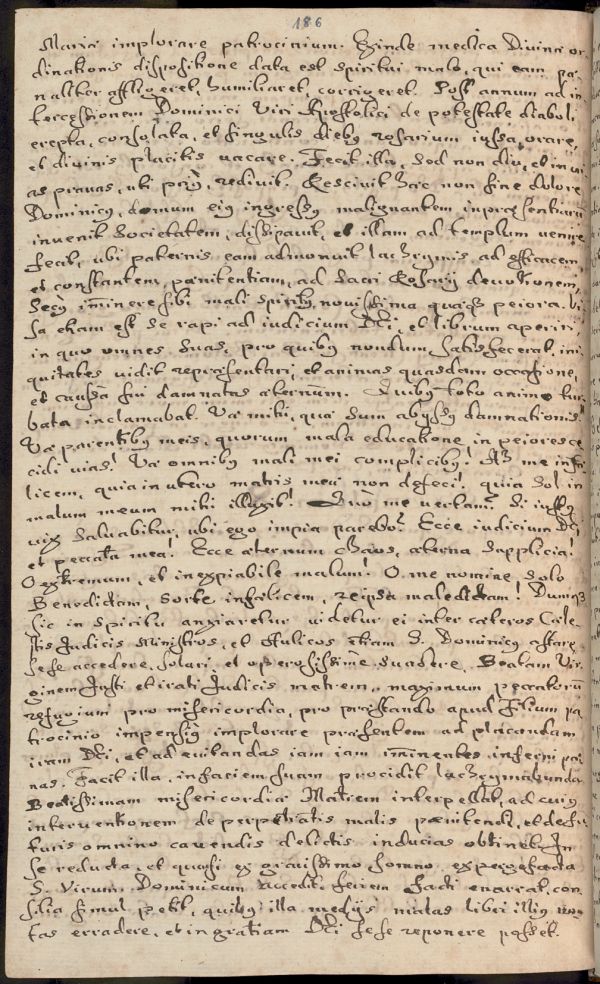 186
Mariæ implorare patrocinium. Exinde medica Divinæ or-
dinationis dispositione data est spiritui malo, qui eam pæ-
naliter affligeret, humiliaret, corrigeret. Post annum ad in-
tercessionem Dominici Viri Apostolici de potestate diaboli
erepta, consolata, et singulis diebus rosarium iussa orare,
et divinis placitis vacare. Fecit illa, sed non diu, et in vi-
as pravas, uti prius, redivit. Rescivit hæc non sine dolore
Dominicus, domum eius ingressus malignantem inpræsentiarum
invenit Societatem, dissipavit, et illam ad templum venire
fecit, ubi paternis eam admonuit lachrymis, ad efficacem,
et constantem, pænitentiam, ad Sacri Rosarij devotionem,
Secus iminere sibi mali spiritus, novissima quæq3 peiora. Vi-
sa etiam est se rapi ad iudicium Dei, et librum aperiri
in quo omnes suas, pro quibus nondum satisfecerat, ini-
quitates vidit repræsentari, et animas quasdam occasione,
et caussa sui damnatas æternum. Quibus toto animo tur-
bata inclamabat. Væ mihi, quæ sum abyssus damnationis!
Væ parentibus meis, quorum mala educatione in peiores ce-
cidi vias! Væ omnibus mali mei complicibus! Ah me infæ-
licem, quia in utero matris meæ non defeci! quia Sol in
malum meum mihi illuxit! Quò me vertam? Si iustus
vix salvabitur, ubi ego impia parebo? Ecce iudicium Dei
et peccata mea! Ecce æternum chaos, æterna supplicia!
O extremum, et inexpiabile malum! O me nomine solo
Benedictam, sorte infælicem, reipsa maledictam! Dumq3
sic in spiritu anxiaretur videtur ei inter cæteros Cæle-
stis Judicis Ministros, et Aulicos etiam S. Dominicus astare,
sese accedere, solari, et operosissime suadere, Beatam Vir-
ginem Justi et irati Judicis matrem, maximum peccatorum
refugium pro misericordia, pro præstando apud Filium pa-
trocinio impensius implorare præsentem ad placandam
iram Dei, et ad evitandas iam iam iminentes inferni pæ-
nas. Facit illa, in faciem suam procidit lachrymabunda
Beatissimam misericordiæ Matrem interpellat, ad cuius
interventionem de perpetratis malis pænitendi, et de fu-
turis omnino cavendis delictis inducias obtinet. In
se reducta, et quasi ex gravissimo somno expergefacta
S. Virum Dominicum accedit. seriem facti enarrat, con-
silia simul petit, quibus illa medijs notas libri illius
tas erradere, et in gratiam Dei sese reponere posset.